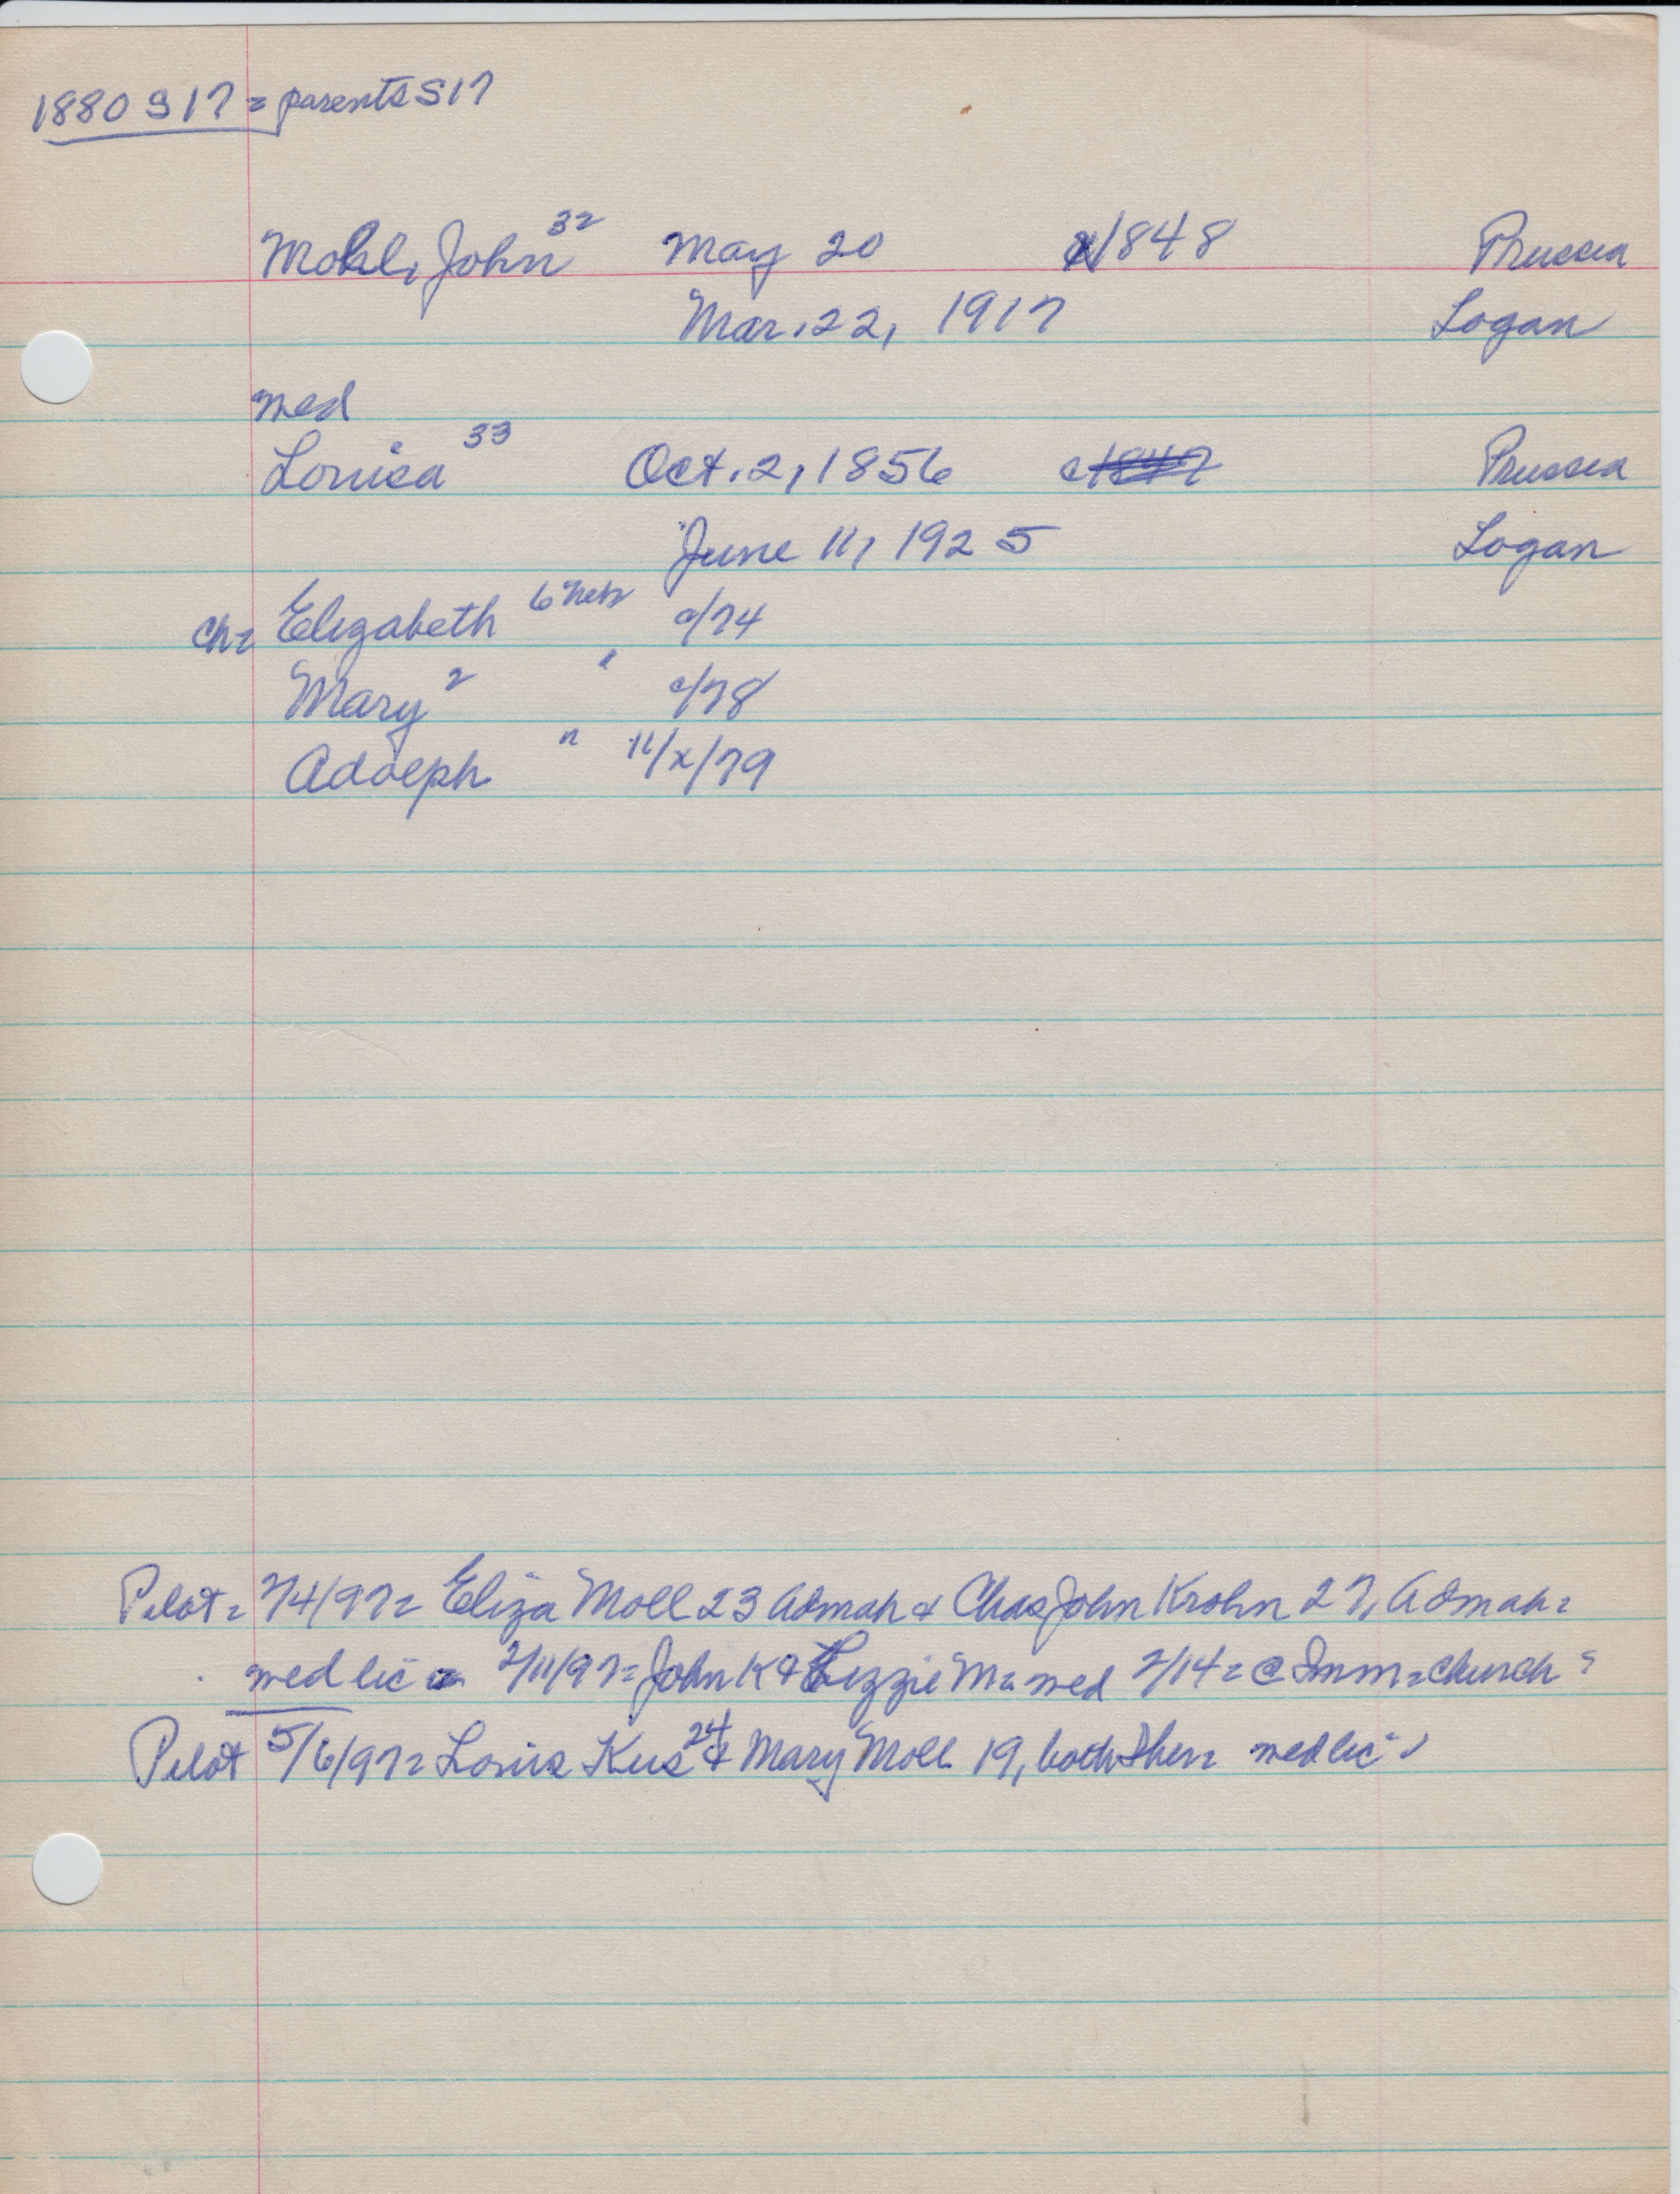 1880 S17 = parents S17
Mohl, John 32 May 20 1848 Prussia
Mar. 22, 1917 Logan
med
Louisa 33 Oct. 2, 1856 c1847 Prussia
June 11, 1925 Logan
ch = Elizabeth 6 Neb c/74
Mary 2 " c/78
Adolph " 11/x/79
Pilot = 2/4/97 = Eliza Moll 23 Admah & Chas John Krohn 27, Admah =
med lic 2/11/97 = John K & Lizzie M = med 2/14 = @ Imm = church
Pilot 5/6/97 = Louis Kus 24 & Mary Moll 19, both Sher = med lic